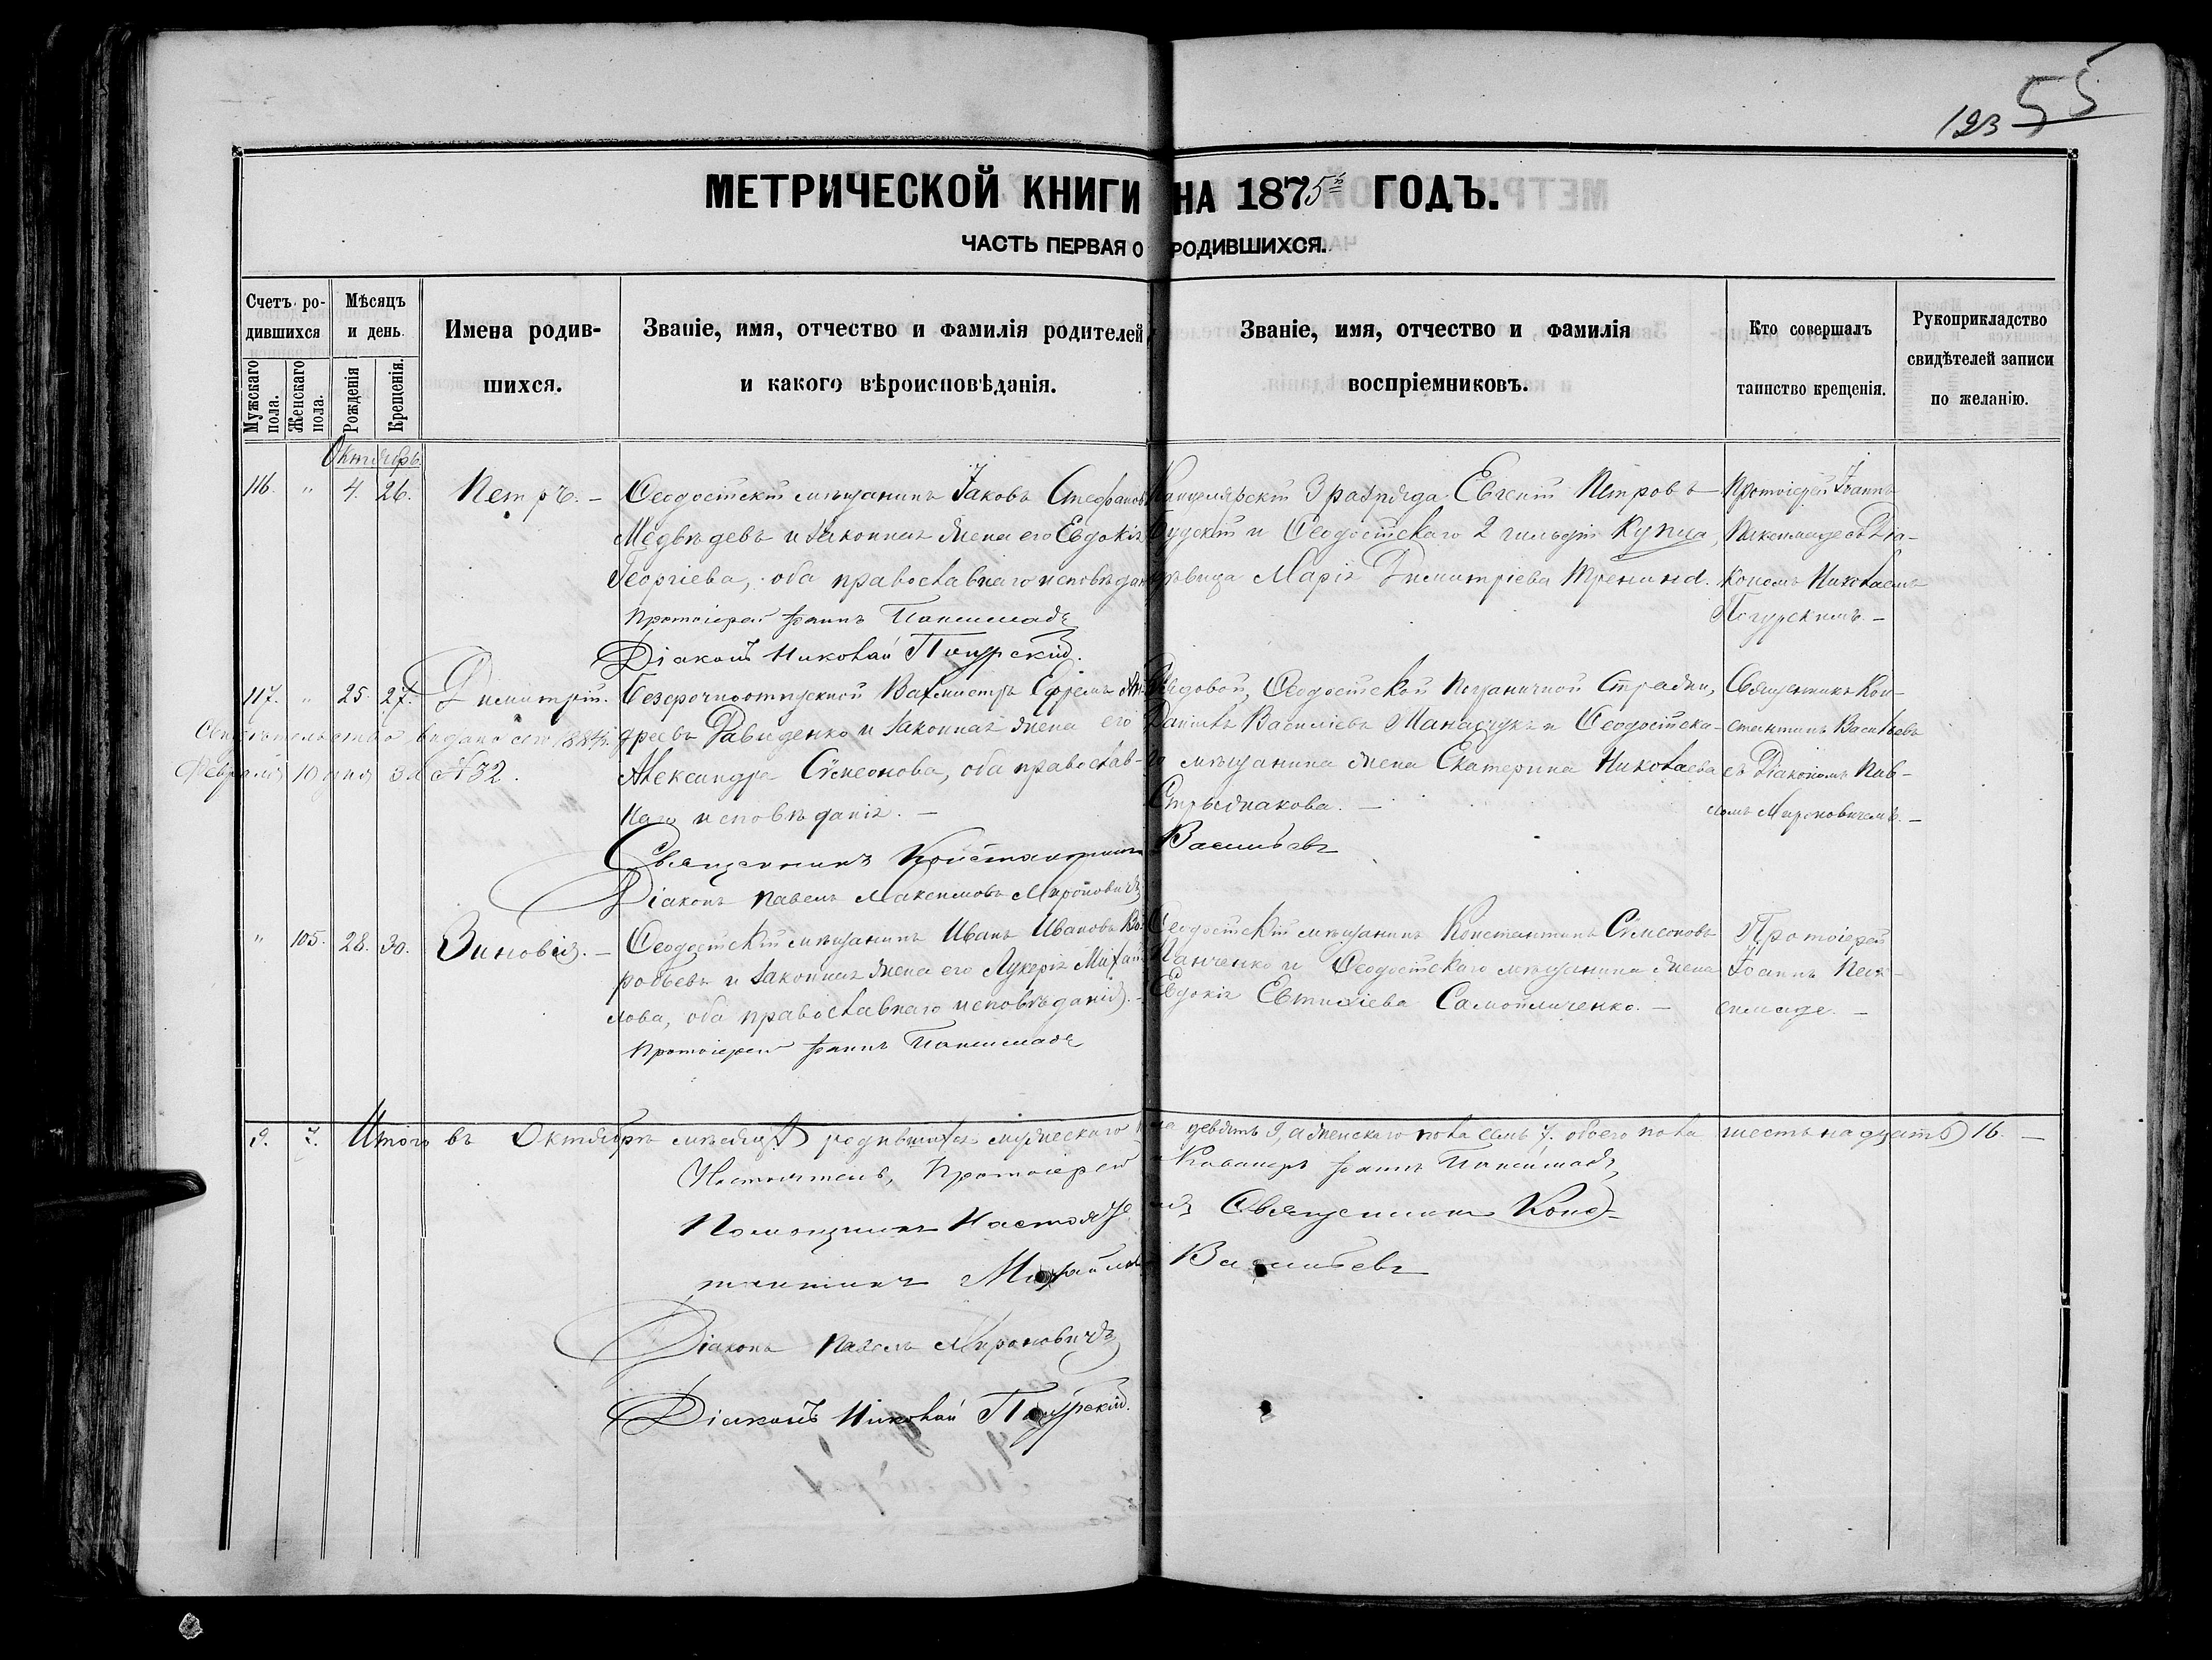 123 55
МЕТРИЧЕСКОЙ КНИГИ НА 1875й ГОДЪ.
ЧАСТЬ ПЕРВАЯ О РОДИВШИХСЯ.
Счетъ ро-
дившихся
Мужскаго пола.
Женскаго пола.
Мѣсяцъ
и день.
Рожденія
Крещенія.
Имена родив-
шихся.
Званіе, имя, отчество и фамилія родителей
и какого вѣроисповѣданія.
Званіе, имя, отчество и фамилія
воспріемниковъ.
Кто совершалъ
таинство крещенія.
Рукоприкладство
свидѣтелей записи
по желанію.
Октябрь.
116. " 4. 26. Петръ. –
Ѳеодосійскій мѣщанинъ Іаковъ Стефановъ
Медвѣдевъ и законная жена его Евдокія
Георгіева, оба православнаго исповѣдан
Протоіерей Іоаннъ
Діаконъ Николай
Канцелярскій 3 разряда Евгеній Петровъ
и Ѳеодосійскаго 2 гильдіи Купца,
Марія Димитріева
Протоіерей Іоаннъ
съ Діа-
кономъ Николаемъ
117. " 25. 27. Димитрій.
Безсрочноотпускной Вахмистръ Ефремъ Ан-
дреевъ Давиденко и законная жена его
Александра Сѵмеонова, оба православ-
наго исповѣданія. –
Священникъ Константинъ Васильевъ
Діаконъ Павелъ Максимовъ Мироновичъ
Свидѣтельство выдано сего 1884 г.
Февраля 10 дня за № 32.
Рядовой, Ѳеодосійской Пограничной Стражи,
Даніилъ Василіевъ Манасчукъ и Ѳеодосійска-
го мѣщанина жена Екатерина Николаева
Стрыжакова. –
Священникъ Кон-
стантинъ Васильевъ
съ Діакономъ Пав-
ломъ Мироновичемъ. –
" 105. 28. 30. Зиновія. –
Ѳеодосійскій мѣщанинъ Иванъ Ивановъ Во-
робьевъ и законная жена его Лукерія Михаи-
лова, оба православнаго исповѣданія. –
Протоіерей Іоаннъ
Ѳеодосійскій мѣщанинъ Константинъ Сѵмеоновъ
Панченко и Ѳеодосійскаго мѣщанина жена
Евдокія Евтихіева
Протоіерей
Іоаннъ
9. 7. Итого въ Октябрѣ мѣсяцѣ родившихся мужескаго по
ла девять 9, а женскаго пола семь 7. обоего пола шестьнадцать 16. –
Настоятель, Протоіерей и Кавалеръ Іоаннъ
Помощникъ Настояте
ля Священникъ Конс-
тантинъ Михайловъ Васильевъ
Діаконъ Павелъ Мироновичъ
Діаконъ Николай